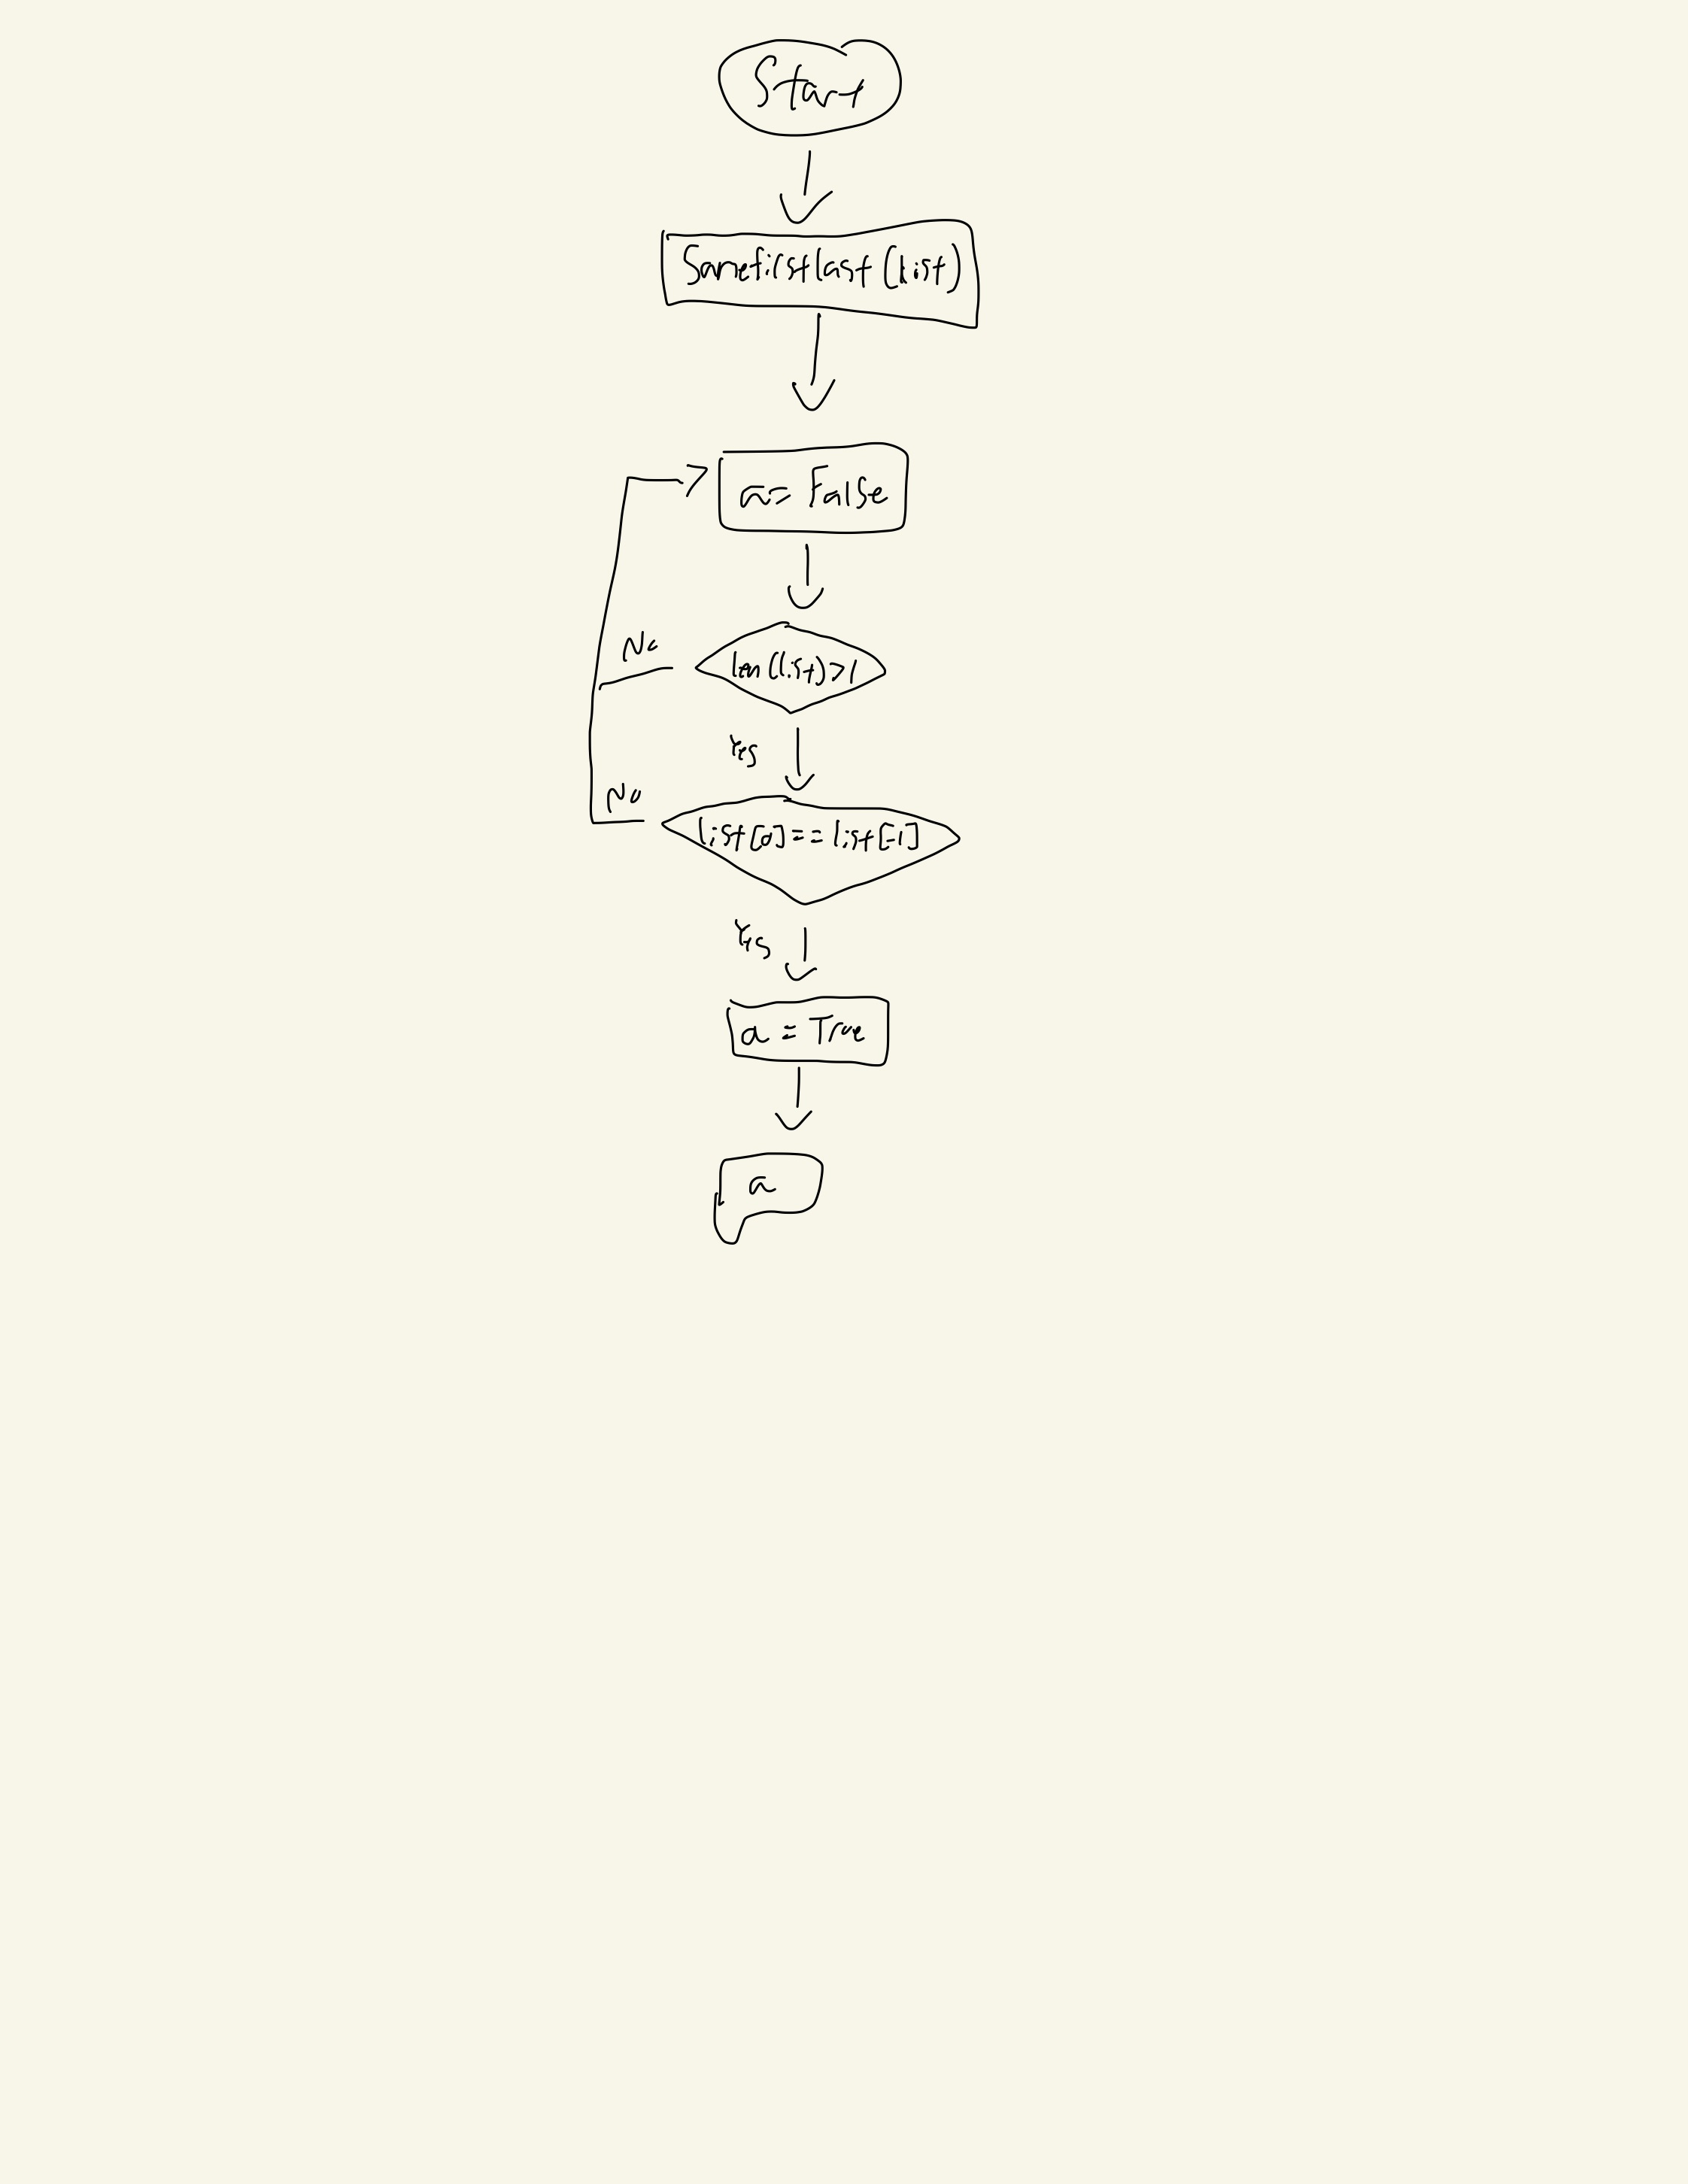 Start
Samefirstlast(list)
a = False
No
len(list)>1
Yes
No
list[0]==list[-1]
Yes
a = True
a